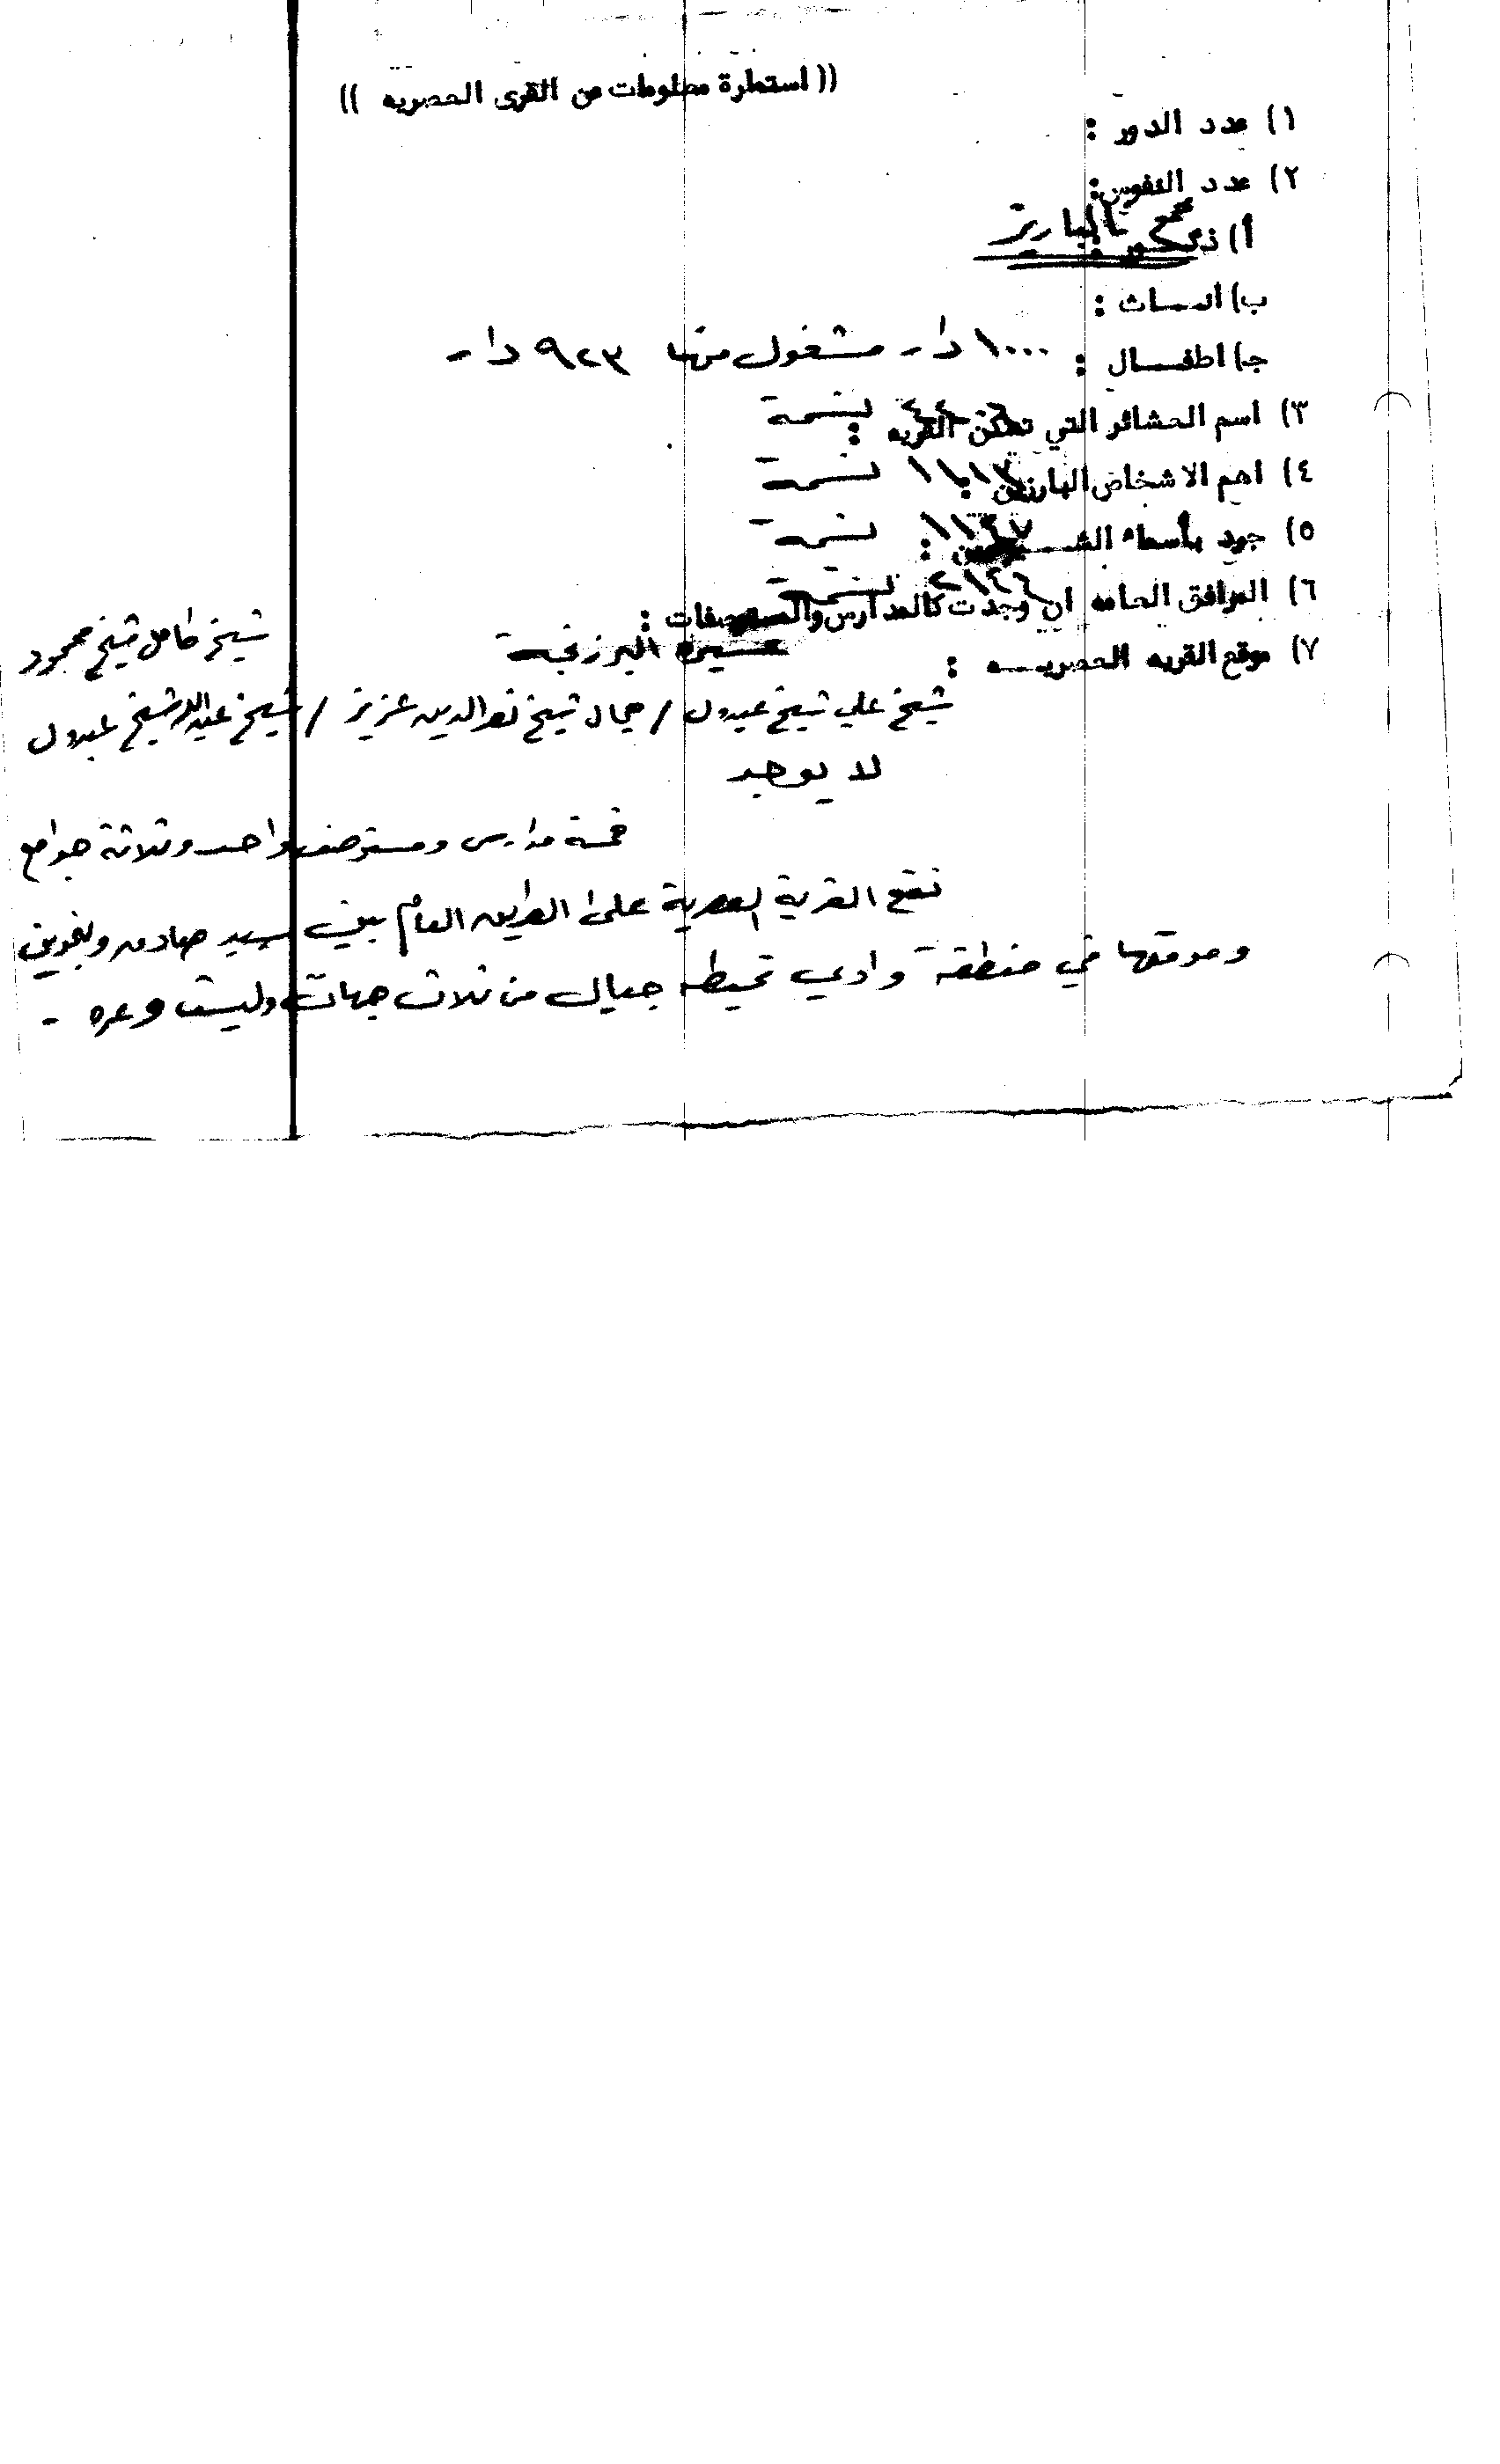 (( استمارة معلومات عن القرى العصريه ))
١) عدد الدور :
٢) عدد النفوس:
أ) ذكور :
ب) اناث :
ج) اطفال : ١٠٠٠ دار مشغول منها ٩٢٣ دار
٣) اسم العشائر التي تسكن القريه : نسمة
٤) اهم الاشخاص البارزين : نسمة
٥) جرد بأسماء : نسمة
٦) المرافق العامه ان وجدت كالمدارس والمستوصفات : نسمة
عشيرة البرزنجة
شيخ كامل شيخ محمود
٧) موقع القريه العصريه :
شيخ علي شيخ عبدول / جمال شيخ نور الدين عزيز / شيخ عبدالله شيخ عبدول
لا يوجد
خمسة مدارس ومستوصف واحد وثلاثة جوامع
تقع القرية العصرية على الطريق العام بين سيد صادق وبنجوين
وموقعها في منطقة وادي تحيطه جبال من ثلاث جهات وليست وعره -